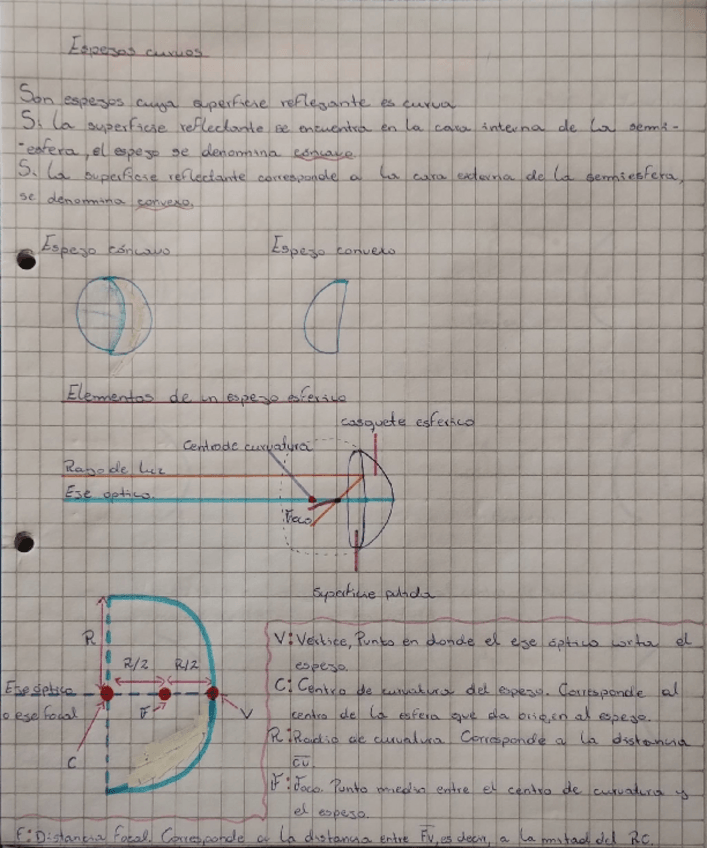 Espejos curvos
Son espejos cuya superficie reflejante es curva
Si la superficie reflectante se encuentra en la cara interna de la semi-
-esfera, el espejo se denomina cóncavo
Si la superficie reflectante corresponde a la cara externa de la semiesfera,
se denomina convexo.
Espejo cóncavo
Espejo convexo
Elementos de un espejo esferico
casquete esferico
Centro de curvatura
Rayo de luz
Eje optico.
Foco
Superficie pulida
R
R/2 R/2
Eje óptico
o eje focal
F
V
C
V: Vertice, Punto en donde el eje óptico corta el
espejo.
C: Centro de curvatura del espejo. Corresponde al
centro de la esfera que da origen al espejo.
R: Radio de curvatura Corresponde a la distancia
CV.
F: Foco. Punto medio entre el centro de curvatura y
el espejo.
f: Distancia focal. Corresponde a la distancia entre FV, es decir, a la mitad del RC.